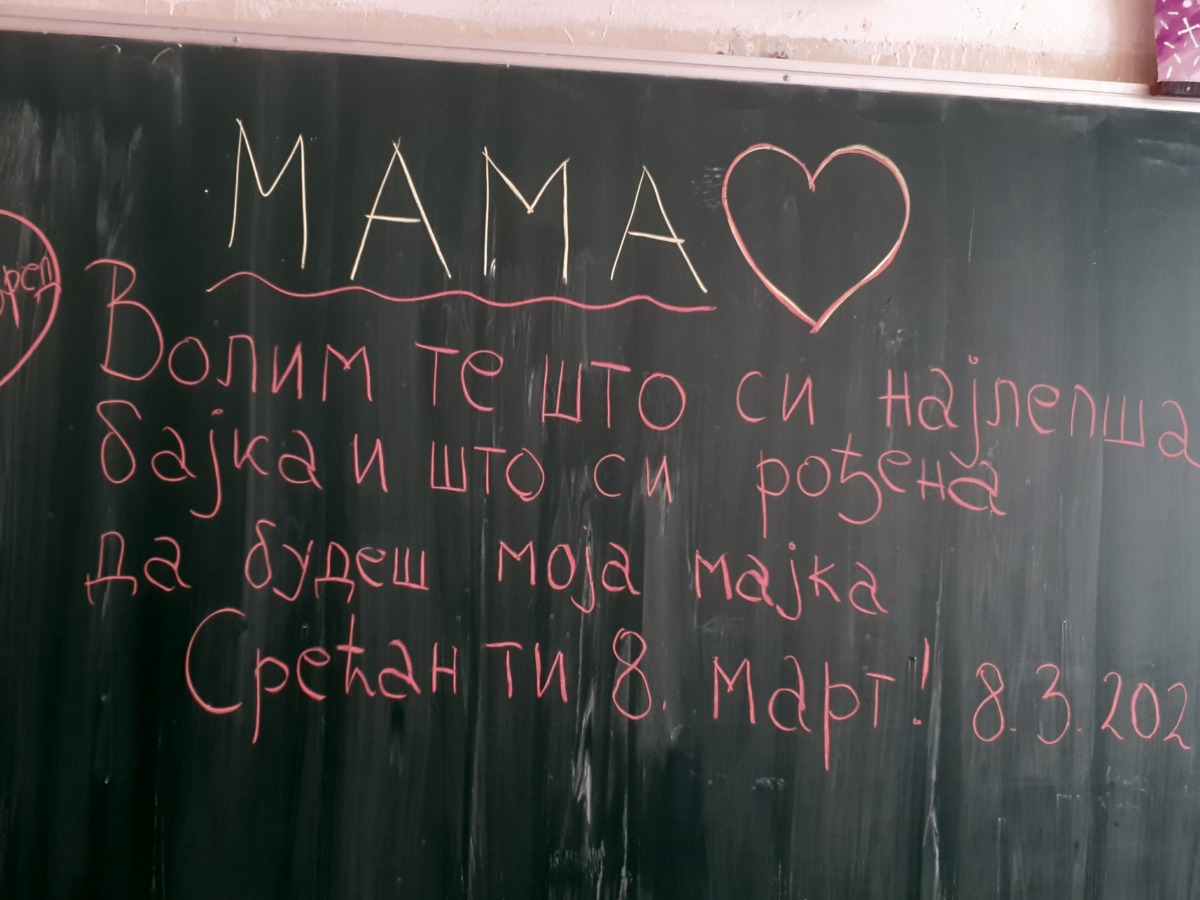 МАМА
Волим те што си најлепша
бајка и што си рођена
да будеш моја мајка
Срећан ти 8. март! 8.3.202